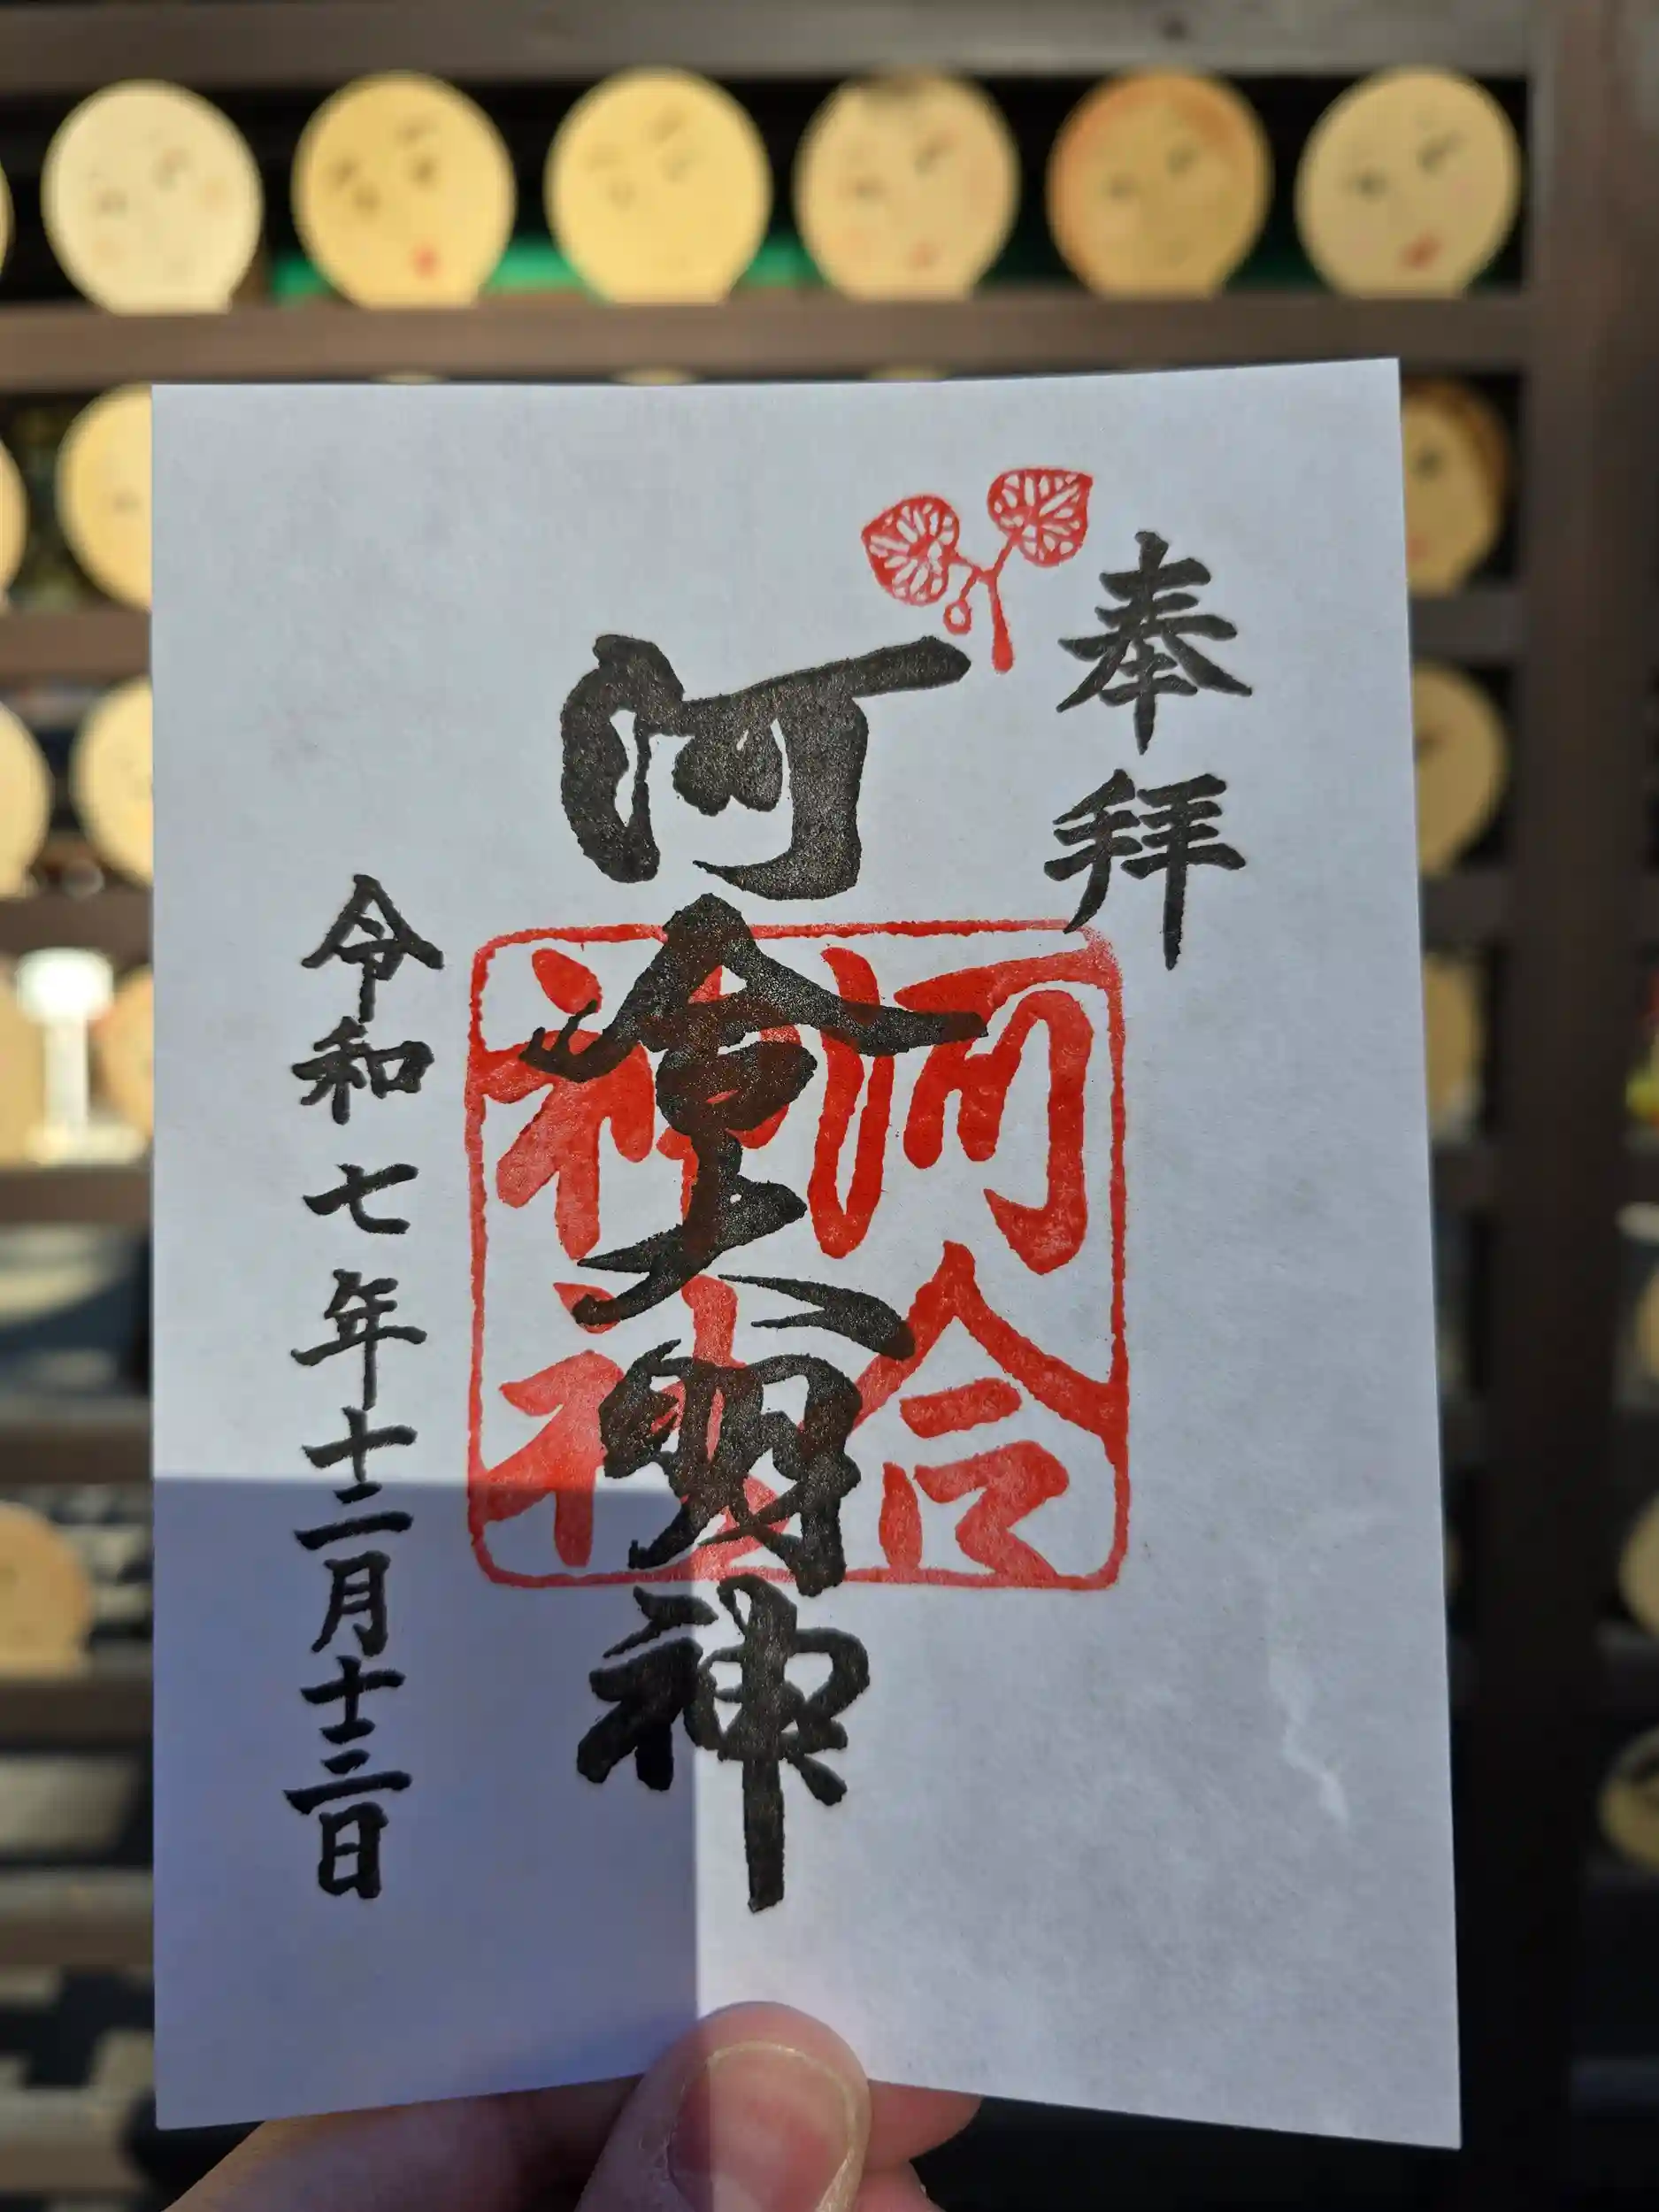 奉拝
河合大明神
河合
神社
令和七年十二月十三日